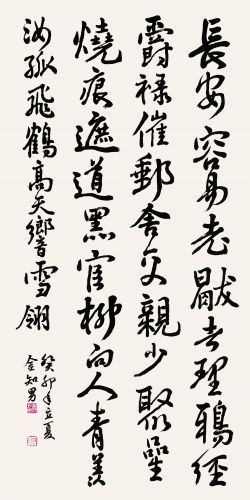 長安容易老去理經
爵祿催郵舍交親少聚星
燒痕遮道黑官柳向人青羨
汝孤飛鶴高天響雪翎
癸卯年立夏
金知男